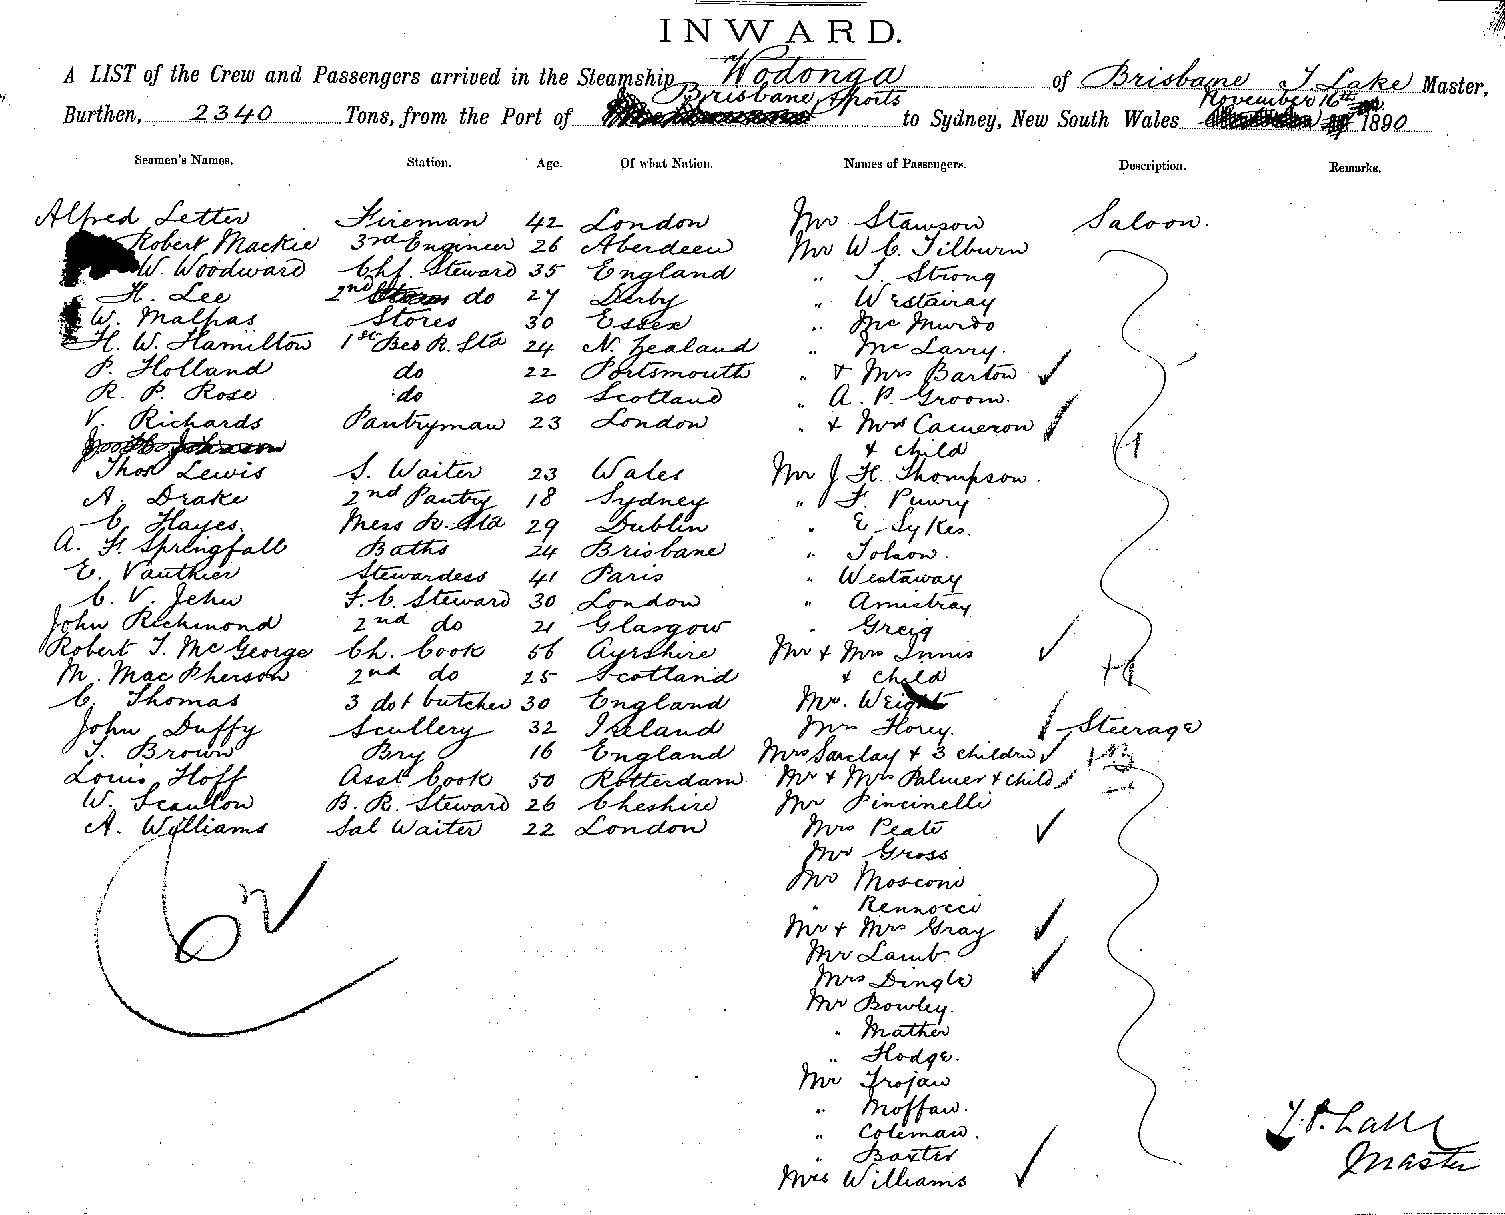 INWARD.
A LIST of the Crew and Passengers arrived in the Steamship Wodonga of Brisbane T Lake Master,
Burthen, 2340 Tons, from the Port of Brisbane & ports to Sydney, New South Wales November 16th 1890
Seamen's Names. Station. Age. Of what Nation. Names of Passengers. Description. Remarks.
Alfred Letter Fireman 42 London Mr Stawson Saloon.
Robert Mackie 3rd Engineer 26 Aberdeen Mr W C Tilburn
W. Woodward Chf. Steward 35 England " T. Strong
H. Lee 2nd do 27 Derby " Westairay
W. Malpas Stores 30 Essex " Mc Murdo
H. W. Hamilton 1st Bed R. Std 24 N. Zealand " Mc Larry.
P. Holland do 22 Portsmouth " & Mrs Barton
R. P. Rose do 20 Scotland " A. P. Groom.
V. Richards Pantryman 23 London " & Mrs Cameron
& child
Thos Lewis S. Waiter 23 Wales Mr J H. Thompson.
A. Drake 2nd Pantry 18 Sydney " F.
C. Hayes. Mess R. Std 29 Dublin " E. Sykes.
A. H. Springfall Baths 24 Brisbane " Tolson.
E. Vauthier Stewardess 41 Paris " Westaway
C. V. Jehu F. C. Steward 30 London " Amistray
John Richmond 2nd do 21 Glasgow " Greig
Robert T. McGeorge Ch. Cook 56 Ayrshire Mr & Mrs Innis
M. MacPherson 2nd do 25 Scotland & child
C. Thomas 3 do & butcher 30 England Mr. Weight
John Duffy Scullery 32 Ireland Mrs Horey. Steerage
T. Brown Bry 16 England Mrs Sarclay & 3 children
Louis Hoff Asst Cook 50 Rotterdam Mr & Mrs Palmer & child
W. Scanlon B. R. Steward 26 Cheshire Mr Pincinelli
A. Williams Sal Waiter 22 London Mrs Peate
Mr Gross
Mr Mosconi
62 " Rennocci
Mr & Mrs Gray
Mr Lamb
Mrs Dingle
Mr Bowley.
" Mather
" Hodge.
Mr Trojan
" Moffaw.
" Coleman.
" Baxter
Mrs Williams
T. P. Lake
Master